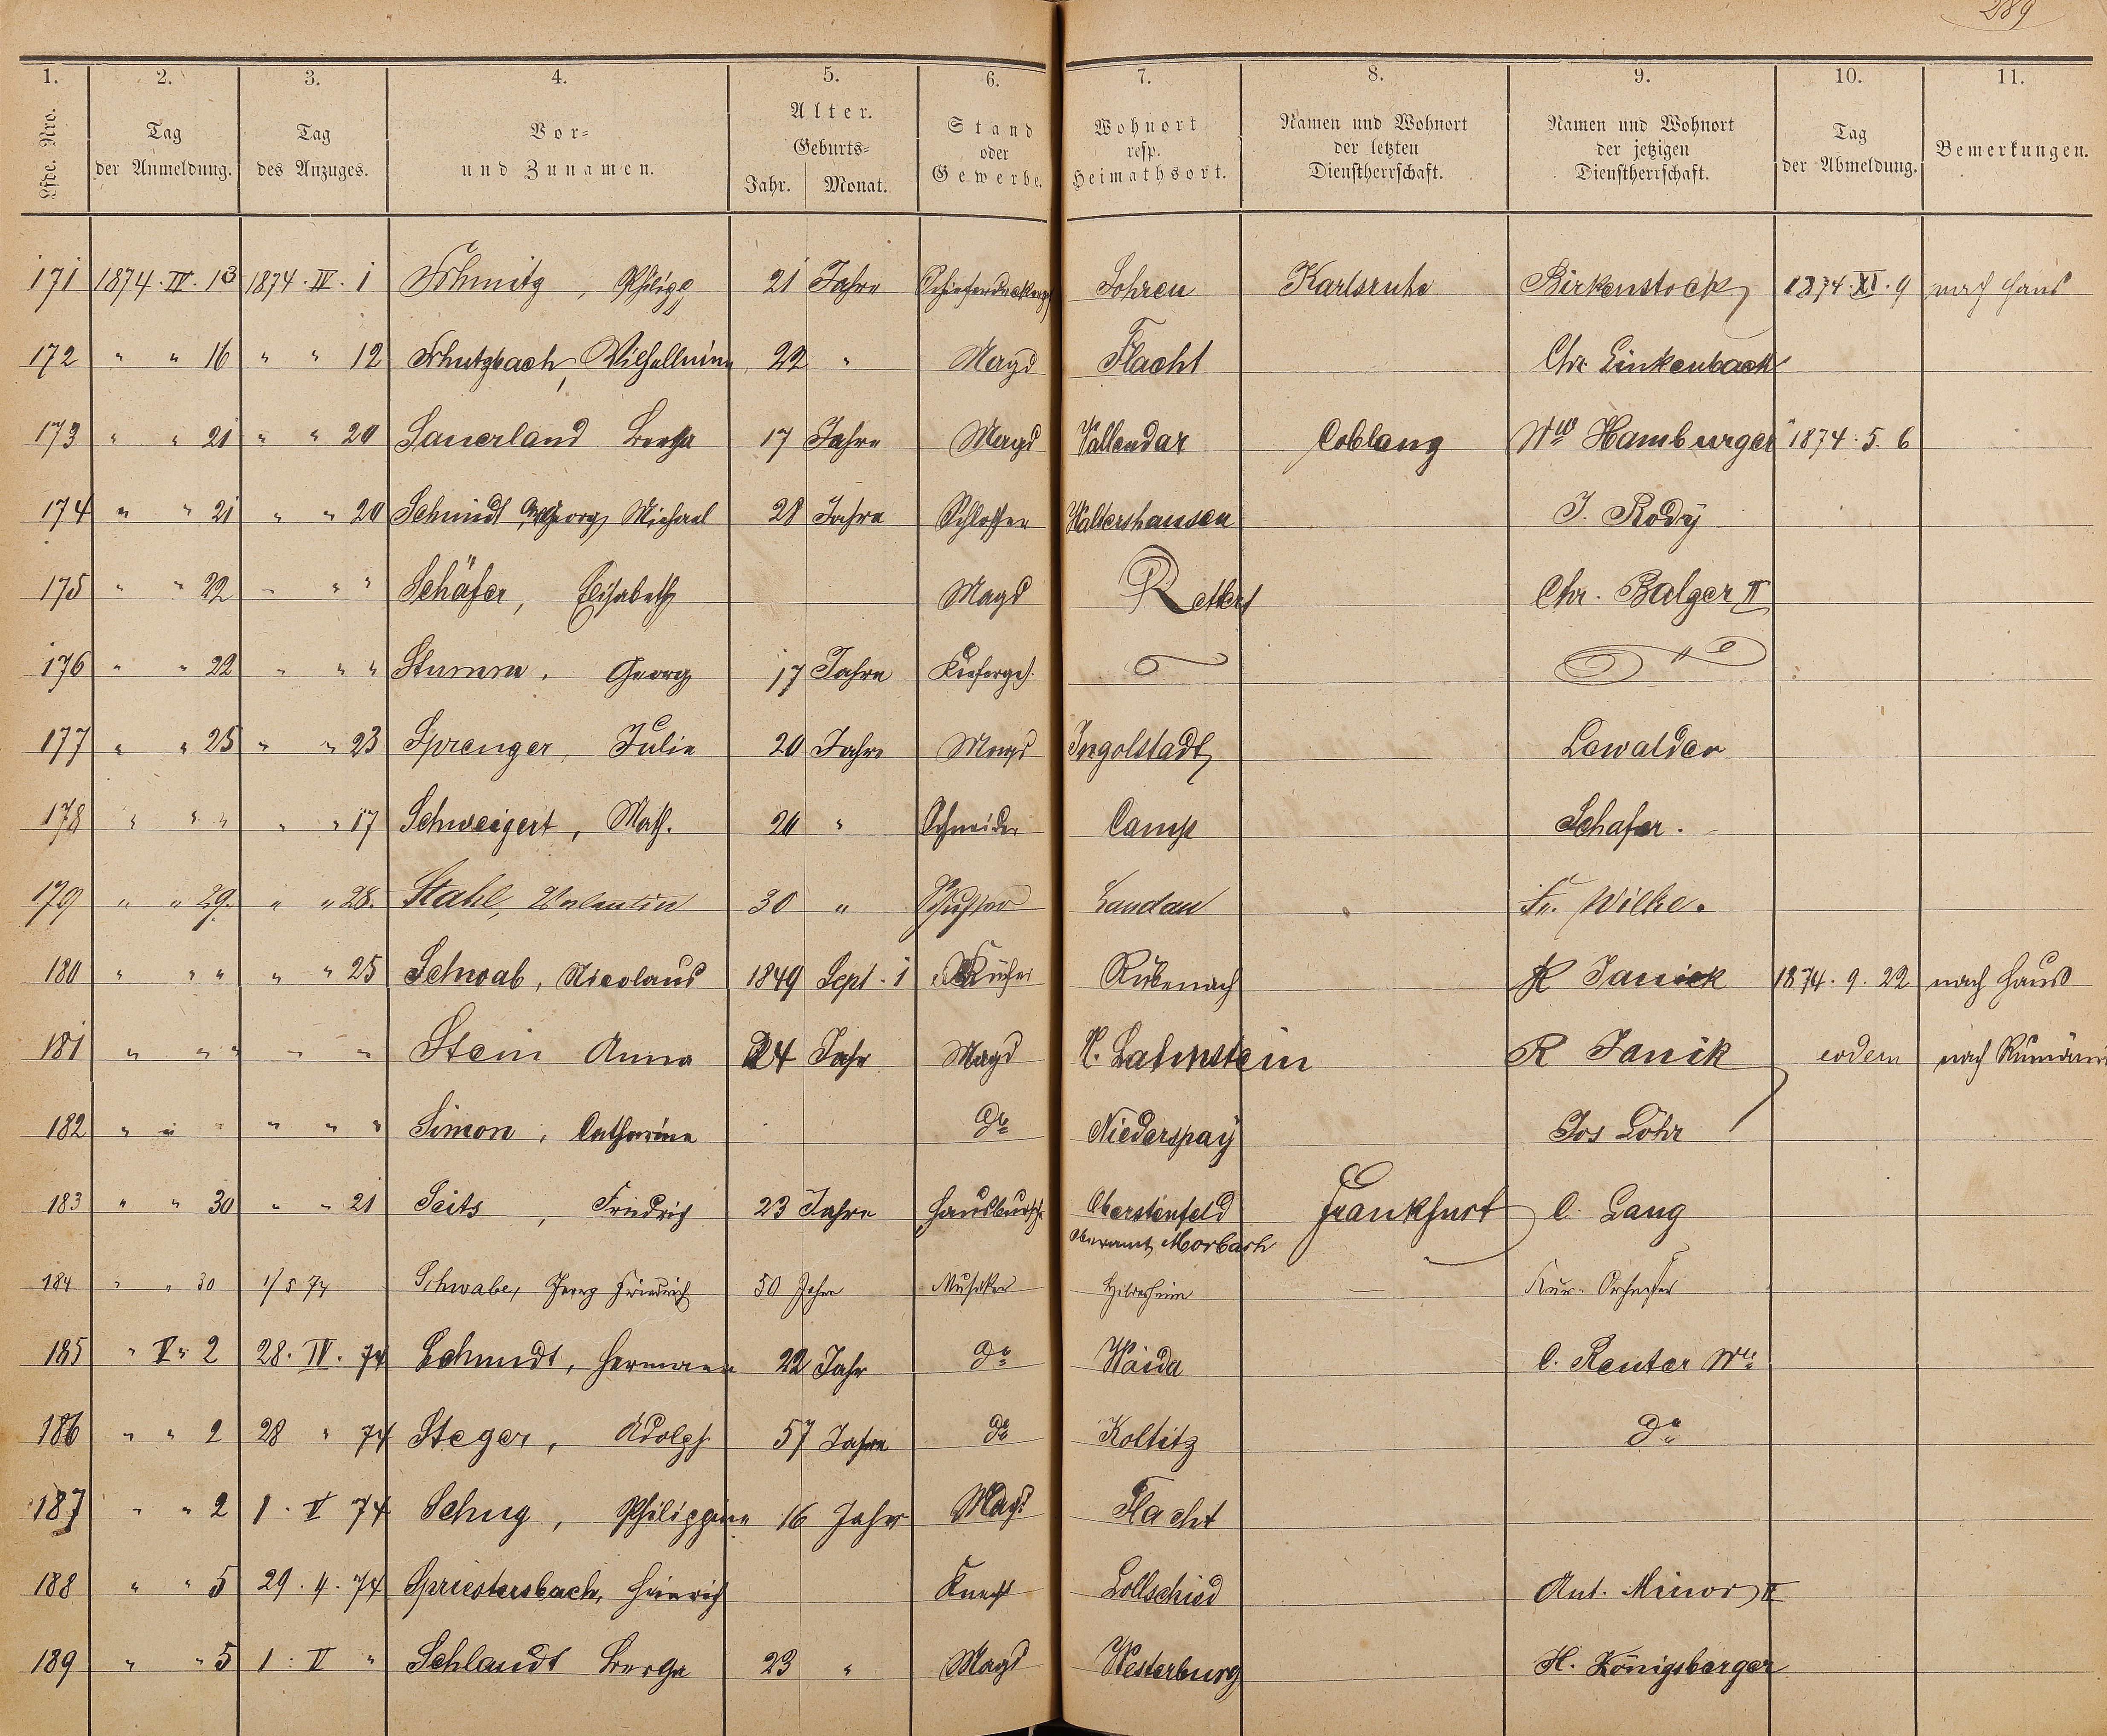 289
1. 2. 3. 4. 5. 6. 7. 8. 9. 10. 11.
Lfde. Nro. Tag der Anmeldung. Tag des Anzuges. Vor= und Zunamen. Alter. Geburts= Jahr. Monat. Stand oder Gewerbe. Wohnort resp. Heimathsort. Namen und Wohnort der letzten Dienstherrschaft. Namen und Wohnort der jetzigen Dienstherrschaft. Tag der Abmeldung. Bemerkungen.
171 1874. IV. 13 1874. IV. 1 Schmitz, Philipp 21 Jahre Sohren Karlsruhe Birkenstock 1874. XI. 9 nach Haus
172 " " 16 " " 12 Schutzbach, 22 " Magd Flacht Chr. Linkenbach
173 " " 21 " " 20 Sauerland Bertha 17 Jahre Magd Vallendar Coblenz Ww Hamburger 1874. 5. 6
174 " " 21 " " 20 Schmidt Georg Michael 28 Jahre Schlosser Waltershausen J. Rody
175 " " 22 " " " Schäfer, Elisabeth Magd Rettert Chr. Balzer II
176 " " 22 " " " Stumm, Georg 17 Jahre Küferges. "
177 " " 25 " " 23 Sprenger, Julie 20 Jahre Magd Ingolstadt Lewalder
178 " " " " " 17 Schweigert, Math. 20 " Schneider Camp Schafer.
179 " " 29. " " 28. Stahl, Valentin 30 " Schuster Landau Fr. Wilke.
180 " " " " " 25 Schwab, Nicolaus 1849 Sept. 1 Rübenach R Janick 1874. 9. 22 nach Haus
181 " " " " " Stein Anna 24 Jahr Magd Lahnstein R Janik eodem nach
182 " " " " " " Simon, Catharina do Niederspay Jos Löhr
183 " " 30 " " 21 Seits, Friedrich 23 Jahre Hausbursche Oberstenfeld Frankfurt C. Lang
Oberamt Marbach
184 " " 30 1/5 74 Schwabe, Georg Friedrich 50 Jahre Musiker Hildesheim Kur-Orchester
185 " V " 2 28. IV. 74 Schmidt, Hermann 22 Jahr do Waida C. Reuter We
186 " " 2 28 " 74 Steger, Adolph 57 Jahre do Koltitz do
187 " " 2 1. V 74 Schug, Philippine 16 Jahr Magd Flacht
188 " " 5 29. 4. 74 Spriestersbach, Heinrich Knecht Lollschied Ant. Minor II
189 " " 5 1. V " Schlandt Bertha 23 " Magd Westerburg H. Königsberger